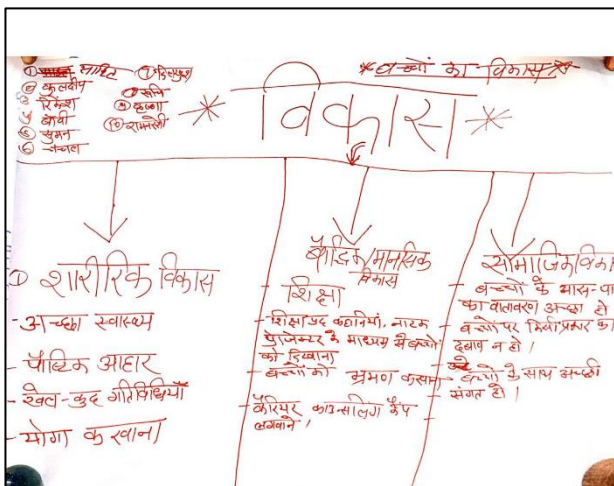 ① अंकित ⑦ दिलखुश
② कुलदीप ⑧ रूचि
③ रिंकेश ⑨ कृष्णा
④ बॉबी ⑩ रामनरेशी
⑤ सुमन
⑥ चंचल
* बच्चों का विकास *
* विकास *
① शारीरिक विकास
- अच्छा स्वास्थ्य
- पौष्टिक आहार
- खेल-कुद गतिविधियाँ
- योगा करवाना
बौद्धिक/मानसिक
विकास
- शिक्षा
- शिक्षाप्रद कहानियां, नाटक
प्रोजेक्टर के माध्यम से बच्चों
को दिखाना
- बच्चों को भ्रमण कराना
- कैरियर काउन्सलिंग कैंप
लगवाने।
सामाजिक विका
- बच्चों के आस-पा
का वातावरण अच्छा हो
- बच्चों पर किसी प्रकार का
दबाव न हो।
- बच्चों के साथ अच्छी
संगत हो।